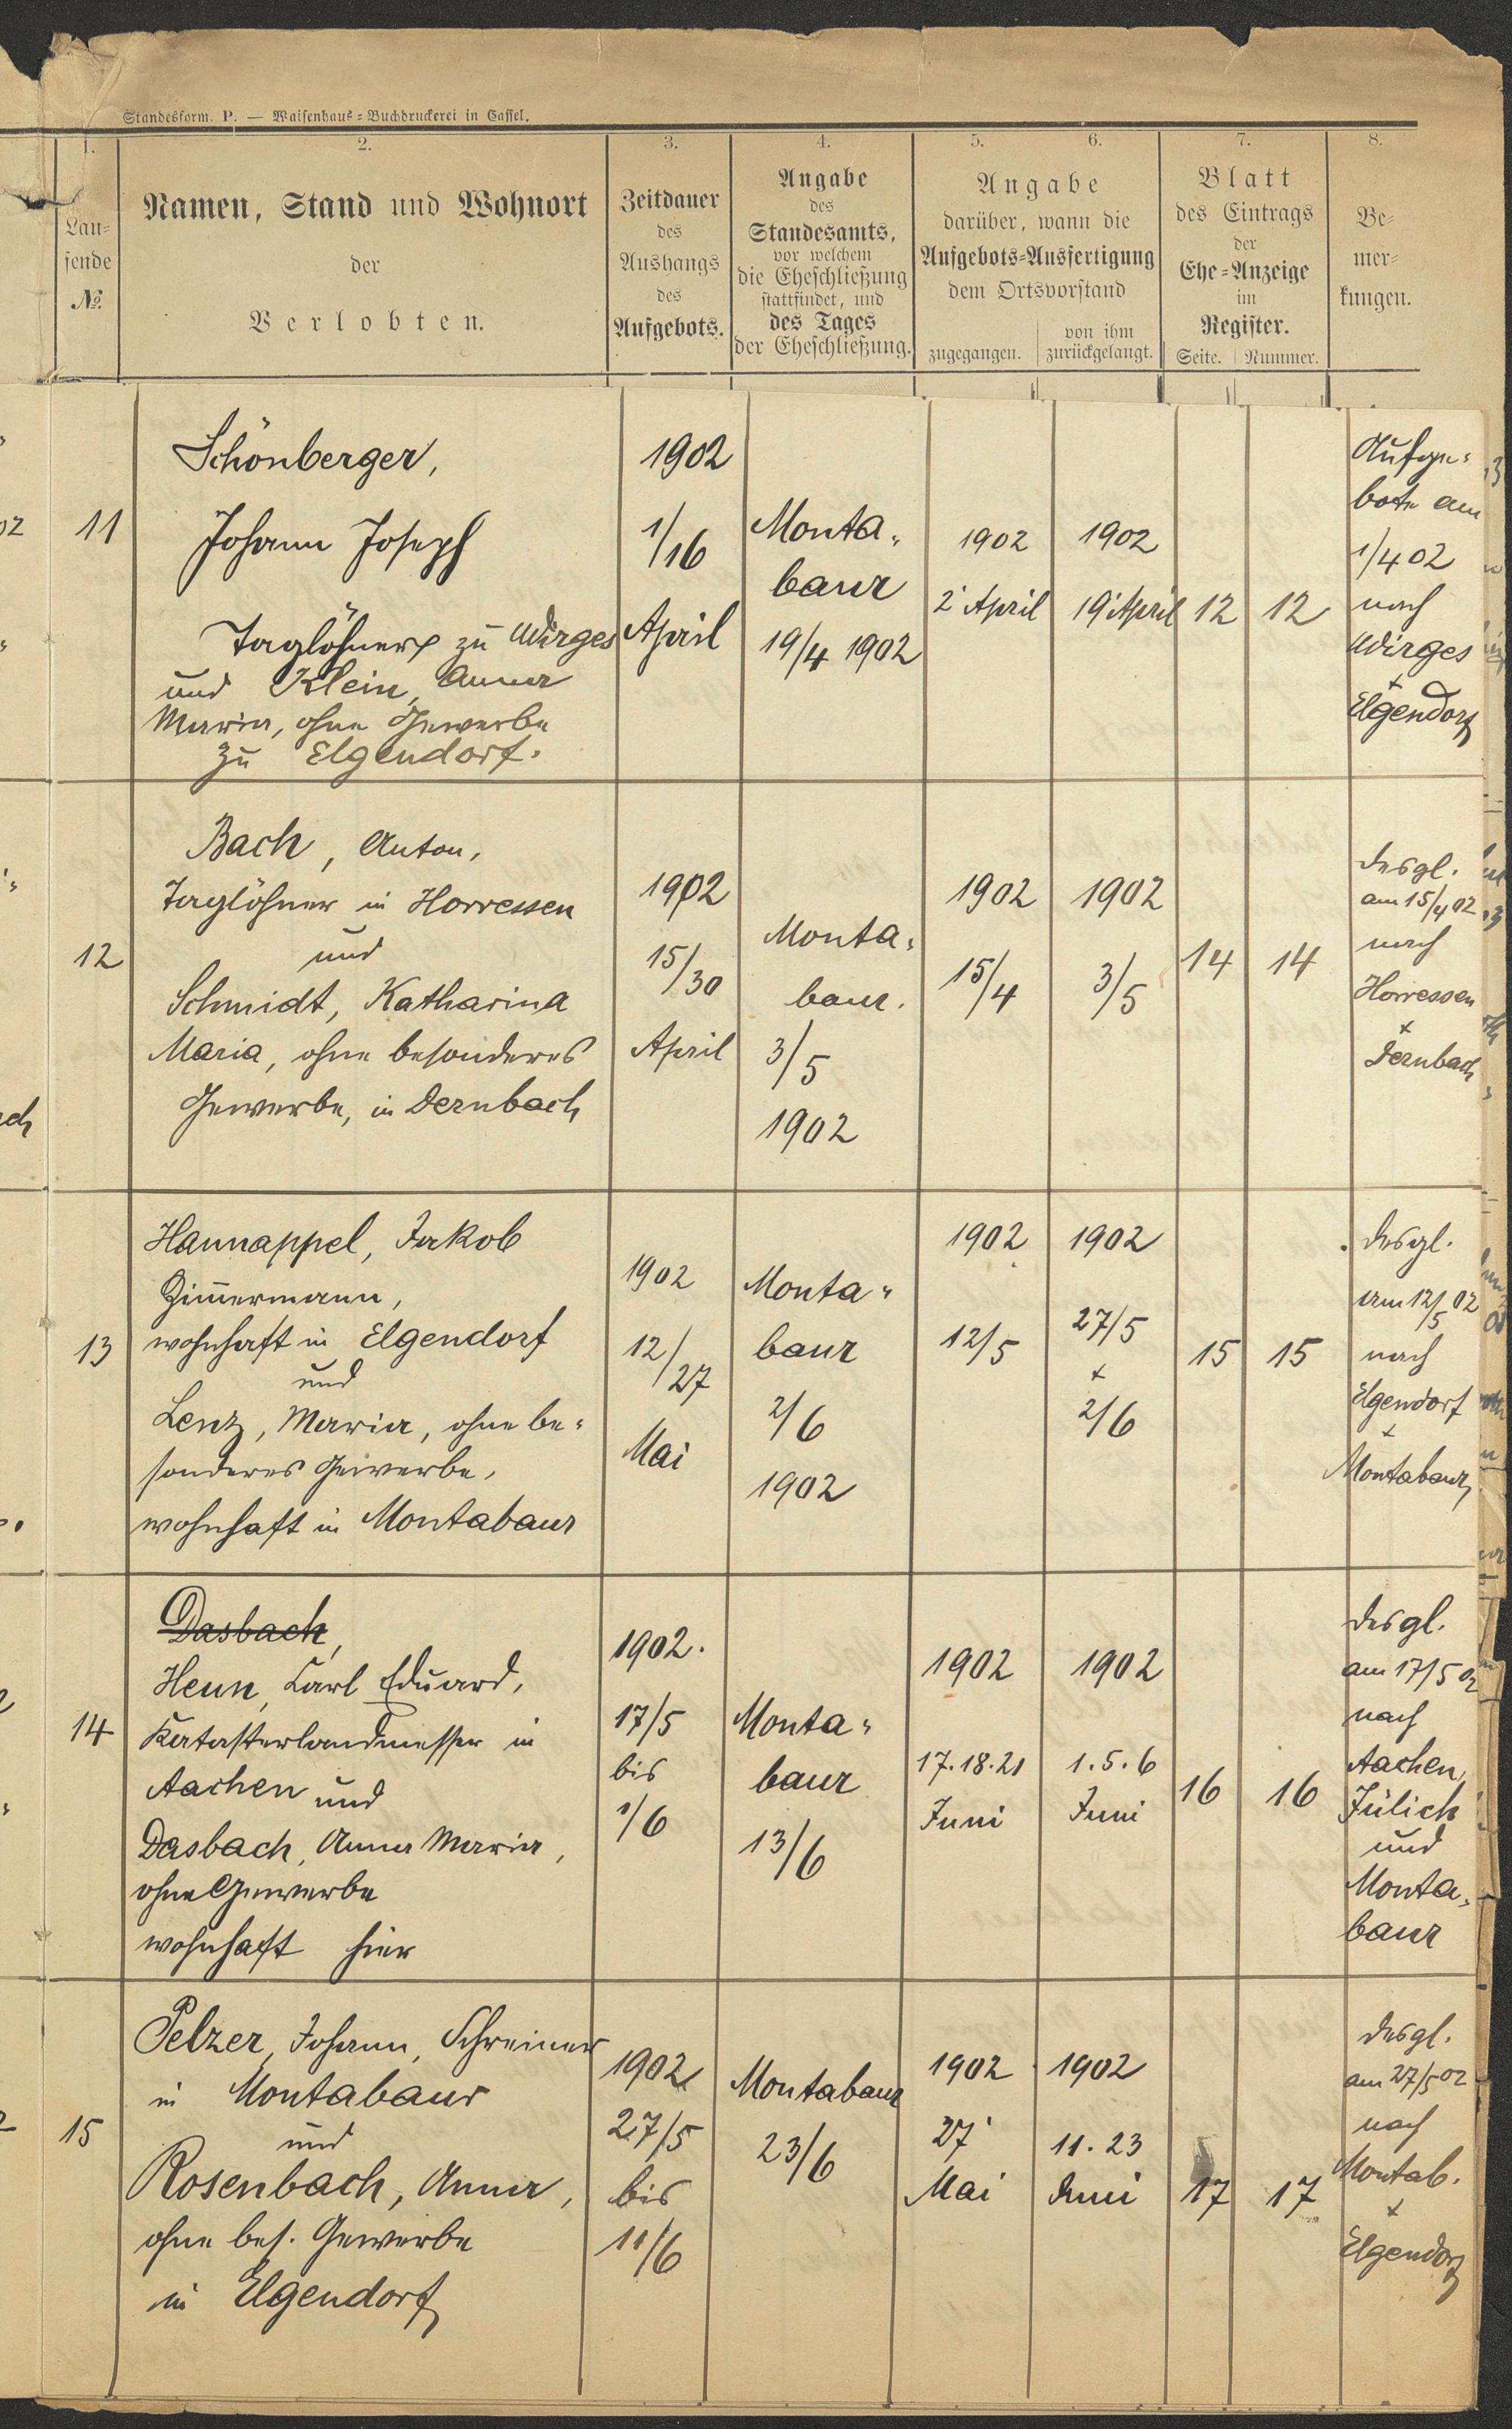 Standesform. P. — Waisenhaus-Buchdruckerei in Cassel.
1.
Lau-
fende
No.
2.
Namen, Stand und Wohnort
der
Verlobten.
3.
Zeitdauer
des
Aushangs
des
Aufgebots.
4.
Angabe
des
Standesamts,
vor welchem
die Eheschließung
stattfindet, und
des Tages
der Eheschließung.
5. 6.
Angabe
darüber, wann die
Aufgebots-Ausfertigung
dem Ortsvorstand
zugegangen.
von ihm
zurückgelangt.
7.
Blatt
des Eintrags
der
Ehe-Anzeige
im
Register.
Seite. Nummer.
8.
Be-
mer-
kungen.
11
Schönberger,
Johann Joseph
Taglöhner zu Wirges
und Klein, Anna
Maria, ohne Gewerbe
zu Elgendorf.
1902
1/16
April
Monta-
baur
19/4 1902
1902
2' April
1902
19' April
12
12
Aufge-
bote am
1/4 02
nach
Wirges
+
Elgendorf
12
Bach, Anton,
Taglöhner in Horressen
und
Schmidt, Katharina
Maria, ohne besonderes
Gewerbe, in Dernbach
1902
15/30
April
Monta-
baur.
3/5
1902
1902
15/4
1902
3/5
14
14
desgl.
am 15/4 02
nach
Horressen
+
Dernbach
13
Hannappel, Jakob
Zimmermann,
wohnhaft in Elgendorf
und
Lenz, Maria, ohne be-
sonderes Gewerbe,
wohnhaft in Montabaur
1902
12/27
Mai
Monta-
baur
2/6
1902
1902
12/5
1902
27/5
+
2/6
15
15
desgl.
am 12/5 02
nach
Elgendorf
+
Montabaur
14
Dasbach,
Henn, Karl Eduard,
Katasterlandmesser in
Aachen und
Dasbach, Anna Maria,
ohne Gewerbe
wohnhaft hier
1902.
17/5
bis
1/6
Monta-
baur
13/6
1902
17. 18. 21
Juni
1902
1. 5. 6
Juni
16
16
desgl.
am 17/5 02
nach
Aachen,
Jülich
und
Monta-
baur
15
Pelzer, Johann, Schreiner
in Montabaur
und
Rosenbach, Anna,
ohne bes. Gewerbe
in Elgendorf
1902
27/5
bis
11/6
Montabaur
23/6
1902
27'
Mai
1902
11. 23
Juni
17
17
desgl.
am 27/5 02
nach
Montab.
+
Elgendorf